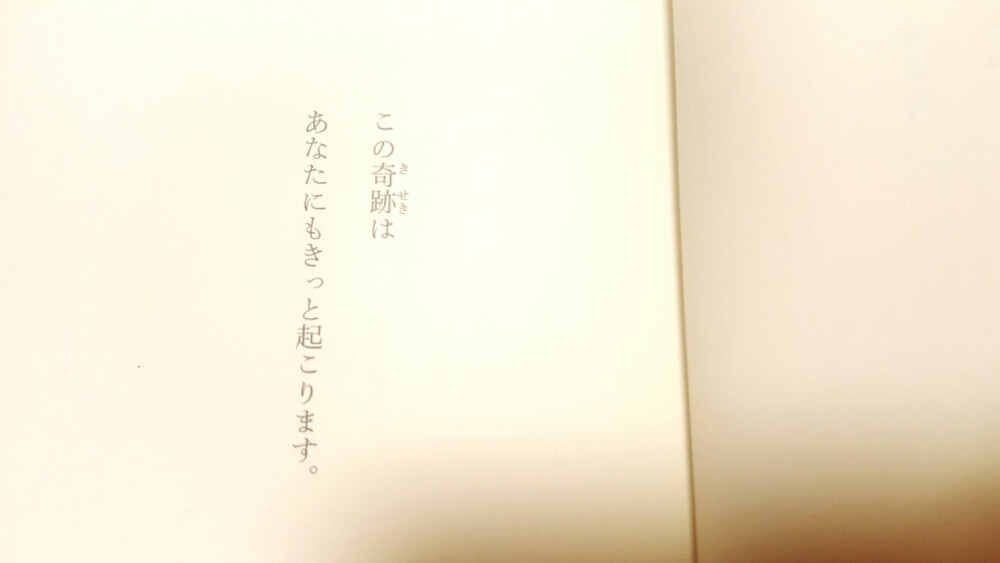 この奇跡は
きせき
あなたにもきっと起こります。